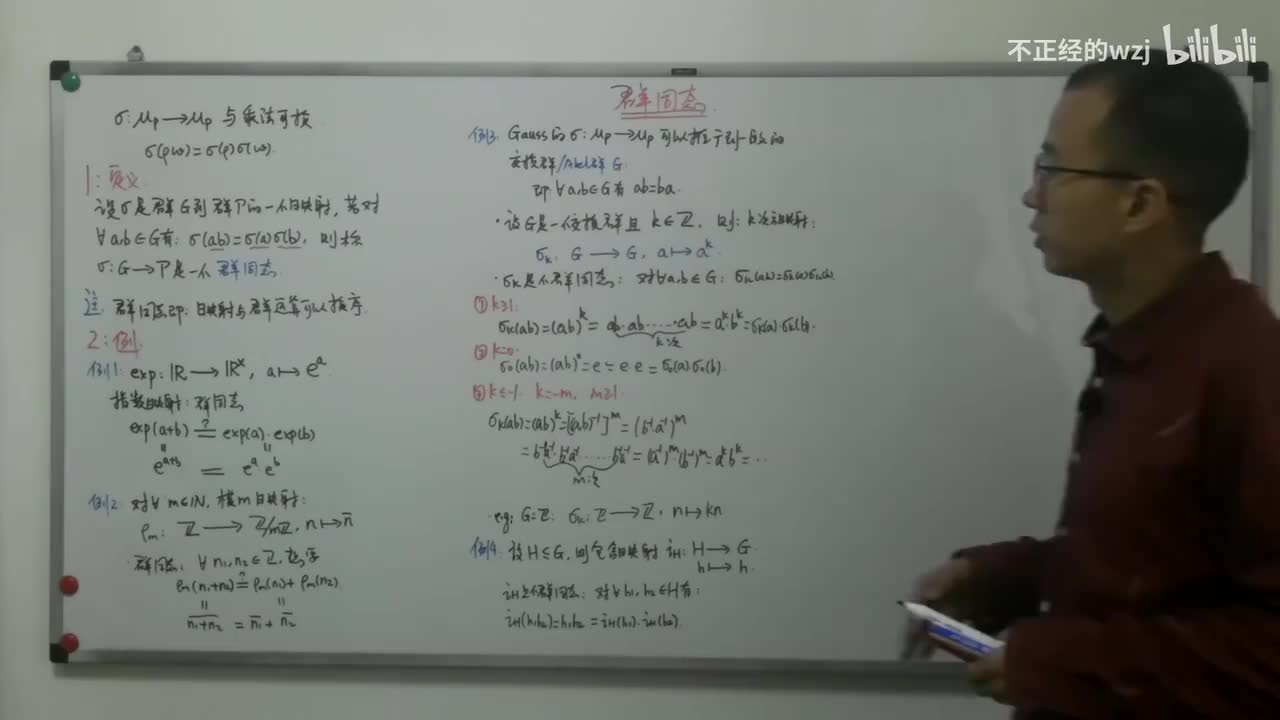 不正经的wzj bilibili
群同态.
σ: μp→μp 与乘法可换.
σ(ρω)=σ(ρ)σ(ω).
1: 定义.
设σ是群G到群Γ的一个映射, 若对
∀a,b∈G有: σ(ab)=σ(a)σ(b), 则称
σ: G→Γ是一个群同态.
注: 群同态即: 映射与群运算可以换序.
2: 例.
例1: exp: ℝ→ℝˣ, a↦eᵃ.
指数映射: 群同态
exp(a+b) ≟ exp(a)·exp(b)
eᵃ⁺ᵇ = eᵃ·eᵇ
例2: 对∀m∈ℕ, 模m映射:
ρm: ℤ→ℤ/mℤ, n↦n̄
群同态: ∀n₁,n₂∈ℤ,
ρm(n₁+n₂) ≟ ρm(n₁)+ρm(n₂)
n₁+n₂ = n̄₁+n̄₂
例3: Gauss的σ: μp→μp可以推广到一般的
交换群/Abel群G.
即∀a,b∈G有 ab=ba.
·设G是一交换群且 k∈ℤ, 则: k次幂映射:
σk: G→G, a↦aᵏ
·σk是个群同态: 对∀a,b∈G: σk(ab)=σk(a)σk(b).
① k≥1.
σk(ab)=(ab)ᵏ=ab·ab·····ab=aᵏ·bᵏ=σk(a)·σk(b).
k次
② k=0.
σ₀(ab)=(ab)⁰=e=e·e=σ₀(a)·σ₀(b).
③ k≤-1. k=-m, m≥1.
σk(ab)=(ab)ᵏ=[(ab)⁻¹]ᵐ=(b⁻¹a⁻¹)ᵐ
=b⁻¹a⁻¹·b⁻¹a⁻¹·····b⁻¹a⁻¹=(a⁻¹)ᵐ(b⁻¹)ᵐ=aᵏbᵏ=···
m次
e.g: G=ℤ: σk: ℤ→ℤ, n↦kn
例4: 设H≤G, 则包含映射 iH: H→G.
h↦h.
iH是个群同态: 对∀h₁,h₂∈H有:
iH(h₁h₂)=h₁h₂=iH(h₁)·iH(h₂).